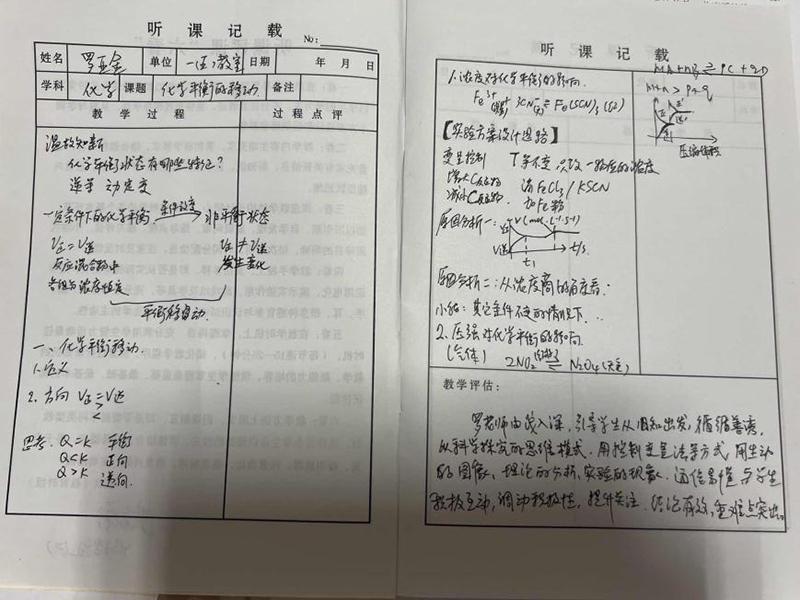 听 课 记 载
No:
姓名 罗亚金 单位 日期 年 月 日
学科 化学 课题 化学平衡的移动 备注
教 学 过 程 过 程 点 评
温故知新
化学平衡状态有哪些特征?
逆 等 动 定 变
一定条件下的化学平衡 条件改变 非平衡状态
V正=V逆 V正≠V逆
反应混合物中 发生变化
各组分浓度恒定
平衡移动
一、化学平衡移动
1.定义
2.方向 V正=V逆
>
<
思考. Q=K 平衡
Q<K 正向
Q>K 逆向.
听 课 记 载
1.浓度对化学平衡的影响.
Fe³⁺ + 3SCN⁻ ⇌ Fe(SCN)₃ (红)
mA+nB ⇌ pC+qD
m+n>p+q
【实验方案设计思路】
变量控制 T等不变 只改一物质的浓度
增大C反应物 滴FeCl₃/KSCN
减小C反应物 加Fe粉
原因分析一: V(mol·L⁻¹·s⁻¹)
V逆
t₁ t/s
原因分析二:从浓度商的角度看:
小结:其它条件不变的情况下...
2.压强对化学平衡的影响.
(气体) 2NO₂ ⇌ N₂O₄(无色)
教学评估:
罗老师由浅入深,引导学生从旧知出发,循循善诱,
以科学探究的思维模式.用控制变量法等方式,用生动
的图象、理论的分析,实验的现象. 与学生
积极互动,调动积极性,提升关注.结论有效,重难点突出。